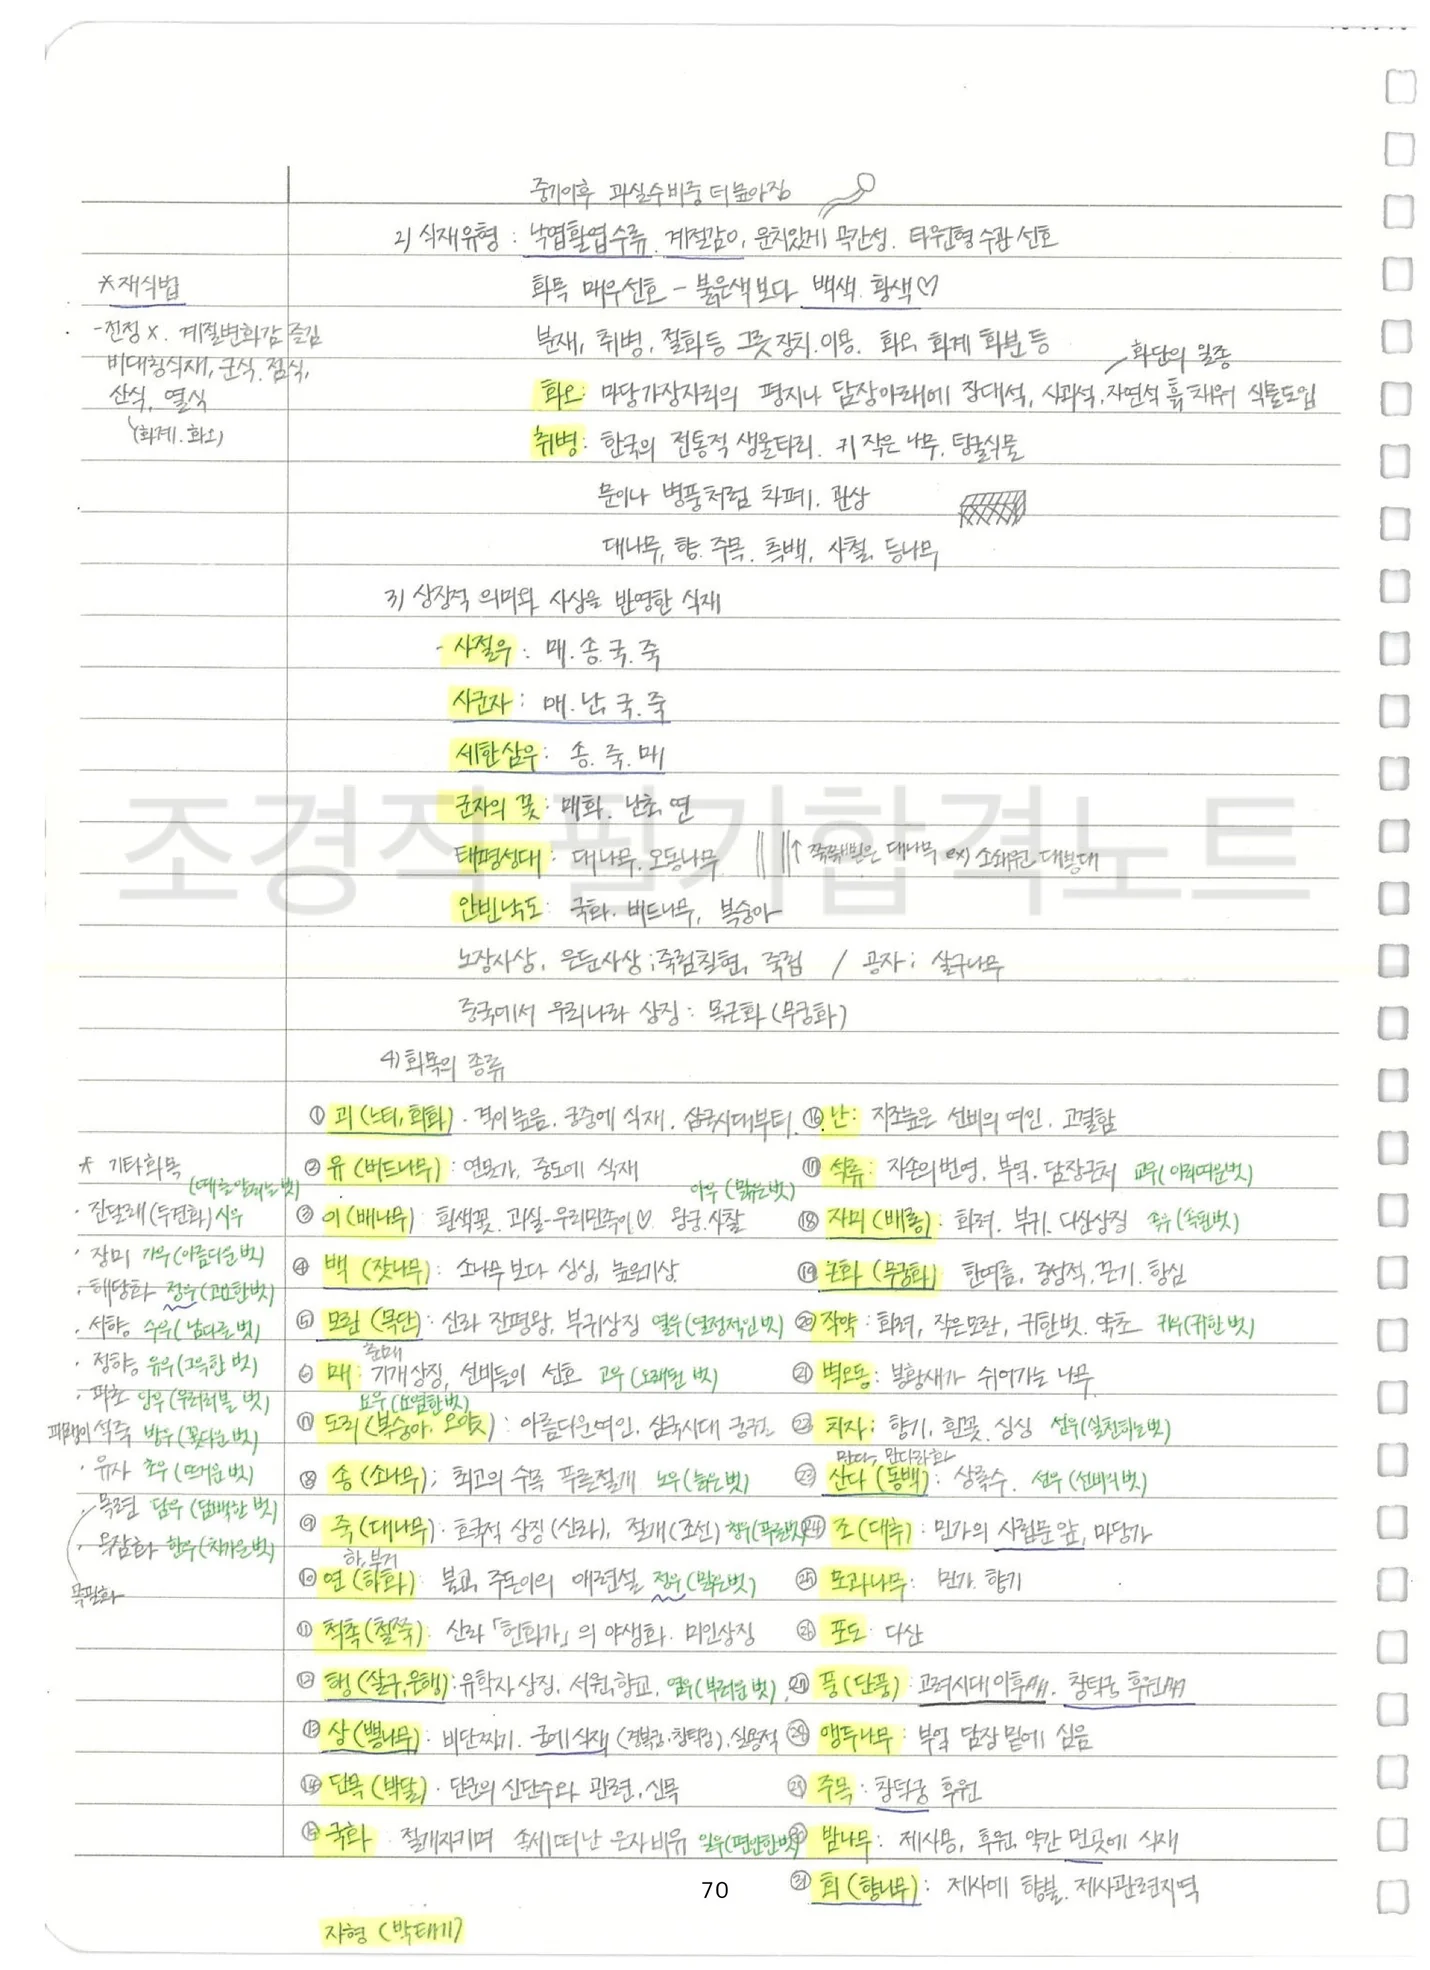 중기이후 과실수비중 더 높아짐
2) 식재유형 : 낙엽활엽수류. 계절감이, 운치있게 곡간성. 타원형 수관 선호
화목 매우선호 - 붉은색보다 백색. 황색♡
분재, 취병, 절화등 그릇장치.이용. 화오, 화계 화분 등
화단의 일종
화오: 마당가장자리의 평지나 담장아래에 장대석, 사괴석, 자연석 흙 채워 식물도입
취병: 한국의 전통적 생울타리. 키 작은 나무, 덩굴식물
문이나 병풍처럼 차폐, 관상
대나무, 향. 주목. 측백, 사철, 등나무
*재식법
-전정 X. 계절변화감 즐김
비대칭식재, 군식. 점식,
산식, 열식
(화계. 화오)
3) 상징적 의미와 사상을 반영한 식재
- 사절우 : 매. 송. 국. 죽
사군자 : 매. 난. 국. 죽
세한삼우 : 송. 죽. 매
군자의 꽃 : 매화. 난초. 연
태평성대 : 대나무. 오동나무 ↑ 쭉쭉뻗은 대나무 ex) 소쇄원 대봉대
안빈낙도 : 국화. 버드나무, 복숭아
노장사상, 은둔사상 ; 죽림칠현, 죽림 / 공자 ; 살구나무
중국에서 우리나라 상징 : 목근화 (무궁화)
4) 화목의 종류
① 괴 (느티, 회화) . 격이높음. 궁중에 식재. 삼국시대부터.
② 유 (버드나무) : 연못가, 중도에 식재
아우 (맑은벗)
③ 이 (배나무) : 흰색꽃. 과실-우리민족이♡ 왕궁. 사찰
④ 백 (잣나무) : 소나무보다 싱싱, 높은기상.
⑤ 모란 (목단) : 신라 진평왕, 부귀상징 열우 (열정적인 벗)
춘매
⑥ 매 : 기개상징, 선비들의 선호 고우 (오래된 벗)
요우 (요염한벗)
⑦ 도리 (복숭아. 오얏) : 아름다운여인. 삼국시대 궁궐
⑧ 송 (소나무) ; 최고의 수목 푸른절개 노우 (늙은벗)
⑨ 죽 (대나무) : 호국적 상징 (신라), 절개 (조선) 청우 (푸른벗)
하, 부거
⑩ 연 (하화) : 불교, 주돈이의 애련설 정우 (맑은벗)
⑪ 척촉 (철쭉) : 신라 「헌화가」 의 야생화. 미인상징
⑫ 행 (살구, 은행) : 유학자상징. 서원, 향교. 염우 (부러운 벗)
⑬ 상 (뽕나무) : 비단짜기. 궁에식재 (경복궁. 창덕궁). 실용적
⑭ 단목 (박달) . 단군의 신단수와 관련, 신목
⑮ 국화 : 절개지키며 속세떠난 은자비유 일우 (편안한벗)
자형 (박태기)
⑯ 난 : 지조높은 선비의 여인. 고결함
⑰ 석류 : 자손의번영, 부엌. 담장근처 교우 (아리따운벗)
⑱ 자미 (배롱) . 화려. 부귀. 다산상징 속우 (속된벗)
⑲ 근화 (무궁화) 한여름, 중성적, 끈기. 항심
⑳ 작약 : 화려, 작은모란, 귀한벗. 약초 귀우 (귀한 벗)
㉑ 벽오동 : 봉황새가 쉬어가는 나무
㉒ 치자 ; 향기, 흰꽃. 싱싱 선우
만다, 만다라화
㉓ 산다 (동백) : 상록수. 선우 (선비의벗)
㉔ 조 (대추) : 민가의 사립문 앞, 마당가
㉕ 모과나무 : 민가. 향기
㉖ 포도 다산
㉗ 풍 (단풍) : 고려시대 이후. 창덕궁 후원
㉘ 앵두나무 : 부엌 담장 밑에 심음
㉙ 주목 : 창덕궁 후원
㉚ 밤나무 : 제사용, 후원 약간 먼곳에 식재
㉛ 회 (향나무) : 제사에 향불. 제사관련지역
* 기타화목
(때를알리는벗)
· 진달래 (두견화) 시우
· 장미 가우 (아름다운 벗)
· 해당화 정우 (고요한벗)
· 서향 수우 (남다른 벗)
· 정향 유우 (그윽한 벗)
· 파초 앙우 (우러러볼 벗)
패랭이 석죽 방우 (꽃다운 벗)
· 유자 초우 (뜨거운 벗)
· 목련 담우 (담백한 벗)
· 옥잠화 한우 (차가운벗)
목필화
조경직 필기합격노트
70